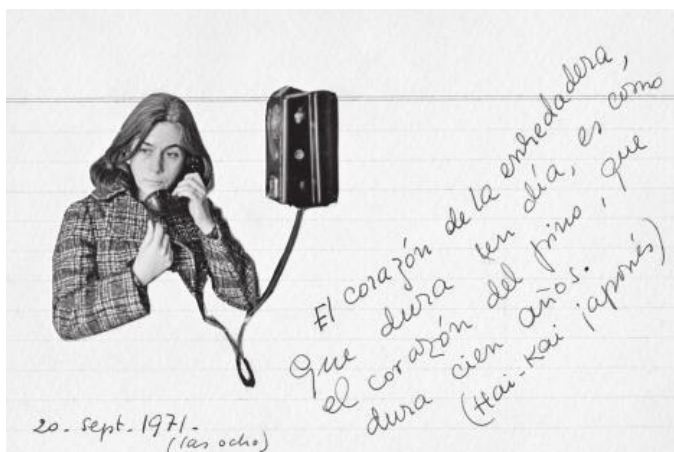 El corazón de la enredadera,
que dura un día, es como
el corazón del pino, que
dura cien años.
(Hai-Kai japonés)
20 - sept - 1971 -
(las ocho)